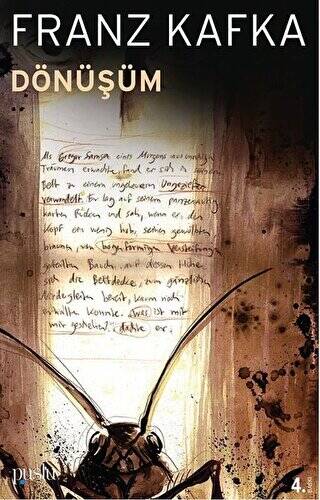 FRANZ KAFKA
DÖNÜŞÜM
Als Gregor Samsa eines Morgens aus unruhigen
Träumen erwachte, fand er sich in seinem
Bett zu einem ungeheueren Ungeziefer
verwandelt. Er lag auf seinem panzerartig
harten Rücken und sah, wenn er den
Kopf ein wenig hob, seinen gewölbten
braunen, von bogenförmigen Versteifungen
geteilten Bauch, auf dessen Höhe
sich die Bettdecke, zum gänzlichen
Niedergleiten bereit, kaum noch
erhalten konnte. "Was ist mit
mir geschehen", dachte er.
puslu
4.